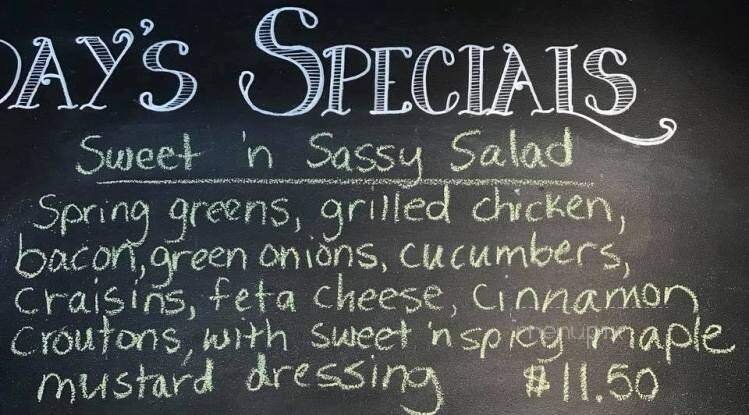 DAY'S SPECIALS
Sweet 'n Sassy Salad
Spring greens, grilled chicken,
bacon, green onions, cucumbers,
craisins, feta cheese, cinnamon
croutons, with sweet 'n spicy maple
mustard dressing $11.50